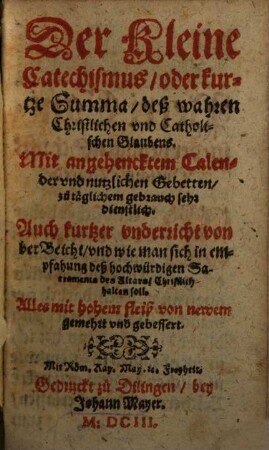 Der Kleine
Catechismus/ oder kur-
tze Summa/ deß wahren
Christlichen vnd Catholi-
schen Glaubens.
Mit angehencktem Calen-
der vnd nutzlichen Gebetten/
zů täglichem gebrauch sehr
dienstlich.
Auch kurtzer vnderricht von
der Beicht/ vnd wie man sich in em-
pfahung deß hochwürdigen Sa-
craments des Altars/ Christlich
halten soll.
Alles mit hohem fleiß von newem
gemehrt vnd gebessert.
Mit Röm. Kay. May. ic. Freyheit.
Gedruckt zů Dilingen/ bey
Johann Mayer.
M. DCIII.